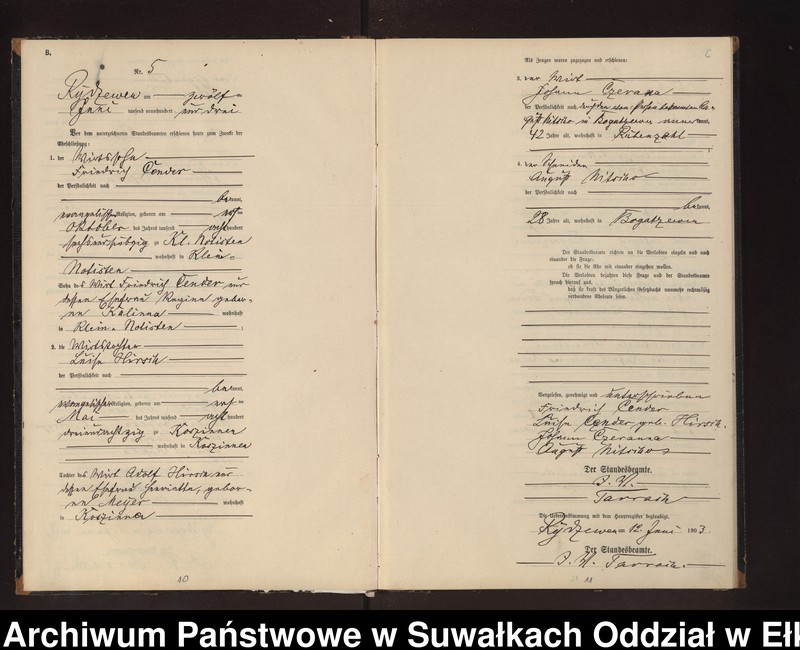 B.
Nr. 5
Rydzewen am zwölf
Juni tausend neunhundert und drei
Vor dem unterzeichneten Standesbeamten erschienen heute zum Zwecke der
Eheschließung:
1. der Wirtssohn
Friedrich Cender
der Persönlichkeit nach
bekannt,
evangelischer Religion, geboren am
Oktober des Jahres tausend achthundert
zu Kl. Notisten
wohnhaft in Klein-
Notisten
Sohn des Wirt Friedrich Cender und
dessen Ehefrau Regina gebor-
nen Kalinna wohnhaft
in Klein-Notisten
2. die Wirtstochter
Luise Hirsch
der Persönlichkeit nach
bekannt,
evangelischer Religion, geboren am
Mai des Jahres tausend achthundert
dreiundachtzig zu Koszinnen
wohnhaft in Koszinnen
Tochter des Wirt Adolf Hirsch und
dessen Ehefrau Henriette, gebor-
nen Meyer wohnhaft
in Koszinnen
10
6
Als Zeugen waren zugezogen und erschienen:
3. der Wirt
Johann Czeranna
der Persönlichkeit nach durch den von Person bekannten Au-
gust Nitsiko in Bogatzewen anerkannt,
42 Jahre alt, wohnhaft in Rübenzahl
4. der Schneider
August Nitsiko
der Persönlichkeit nach
bekannt,
28 Jahre alt, wohnhaft in Bogatzewen
Der Standesbeamte richtete an die Verlobten einzeln und nach
einander die Frage:
ob sie die Ehe mit einander eingehen wollen.
Die Verlobten bejahten diese Frage und der Standesbeamte
sprach hierauf aus,
daß sie kraft des Bürgerlichen Gesetzbuchs nunmehr rechtmäßig
verbundene Eheleute seien.
Vorgelesen, genehmigt und unterschrieben
Friedrich Cender
Luise Cender geb. Hirsch.
Johann Czeranna
August Nitsikos
Der Standesbeamte.
J. V.
Tarrach
Die Uebereinstimmung mit dem Hauptregister beglaubigt.
Rydzewen am 12. Juni 1903.
Der Standesbeamte.
J. V. Tarrach.
11
Archiwum Państwowe w Suwałkach Oddział w Ełk